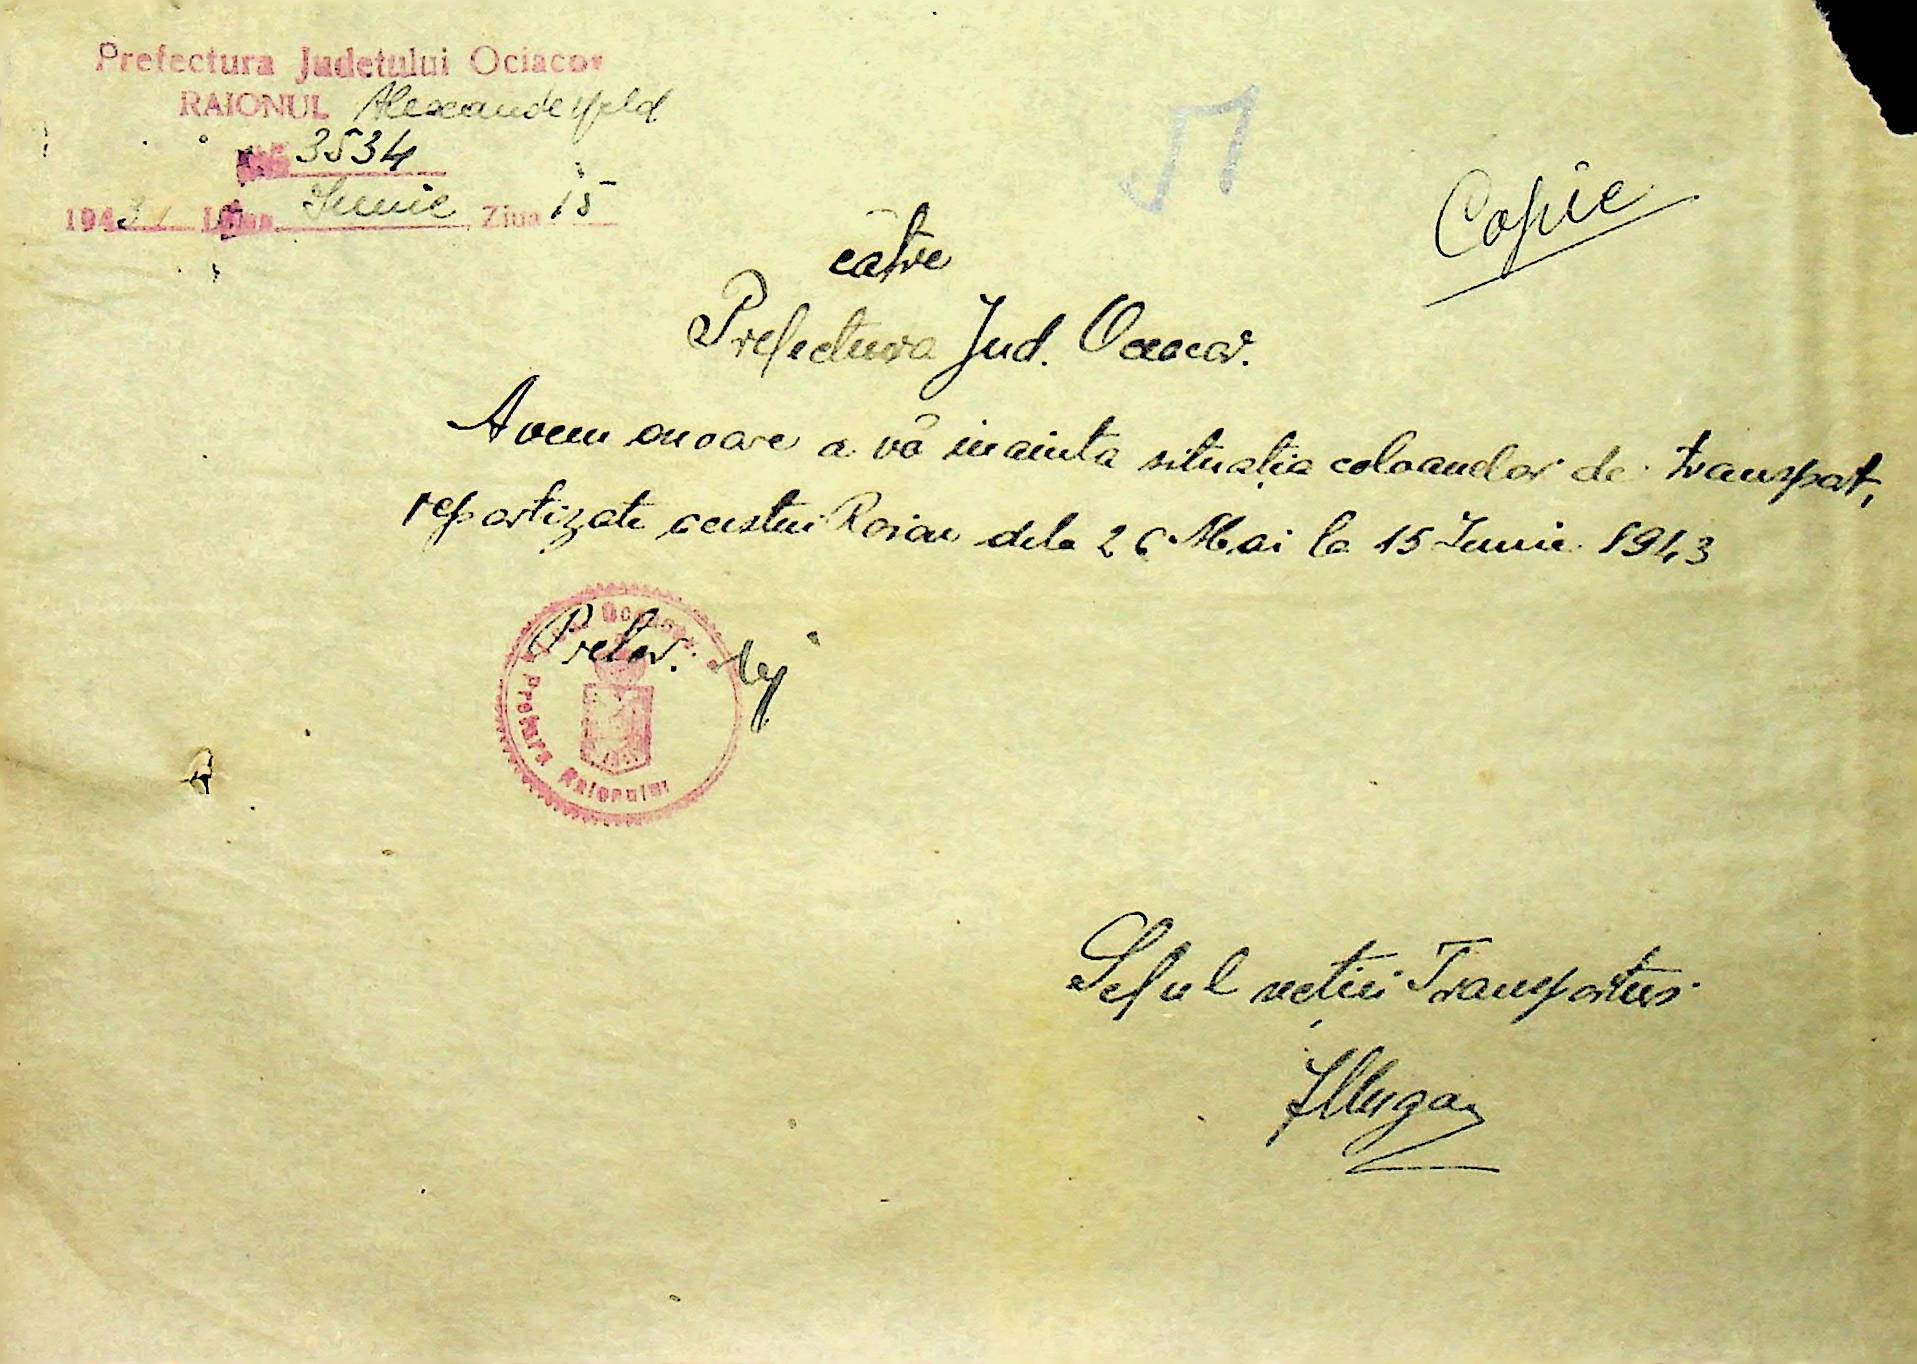 Prefectura Județului Ociacov
RAIONUL Alexanderfeld
3534
1943 Luna Iunie Ziua 15
Copie
către
Prefectura Jud. Oceacov.
Avem onoare a vă inainta situația coloanelor de transport,
repartizate acestui Raion dela 26 Mai la 15 Iunie 1943
Pretor.
Pretura Raionului
Seful sectiei Transportur